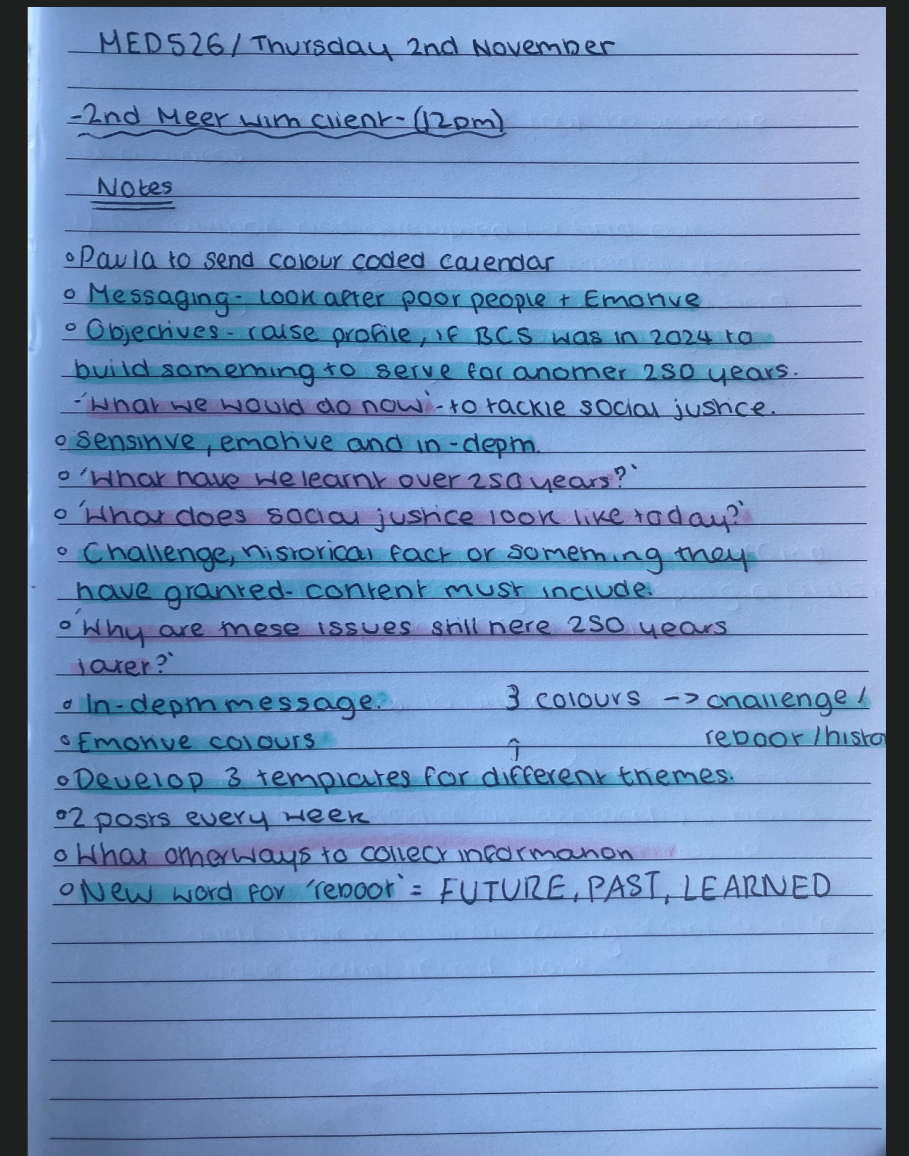 MED526/Thursday 2nd November
-2nd Meet with client- (12pm)
Notes
◦ Paula to send colour coded calendar
◦ Messaging- Look after poor people + Emotive
◦ Objectives - raise profile, if BCS was in 2024 to
build something to serve for another 250 years.
-'What we would do now'- to tackle social justice.
◦ Sensitive, emotive and in-depth.
◦ 'What have we learnt over 250 years?'
◦ 'What does social justice look like today?'
◦ Challenge, historical fact or something they
have granted- content must include.
◦ 'Why are these issues still here 250 years
later?'
◦ In-depth message. 3 colours -> challenge/
◦ Emotive colours ↑ reboot/histo
◦ Develop 3 templates for different themes.
◦ 2 posts every week
◦ What other ways to collect information
◦ New word for 'reboot' = FUTURE, PAST, LEARNED